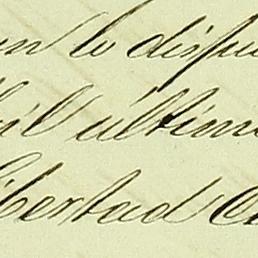 en lo dispu
il último
ibertad C